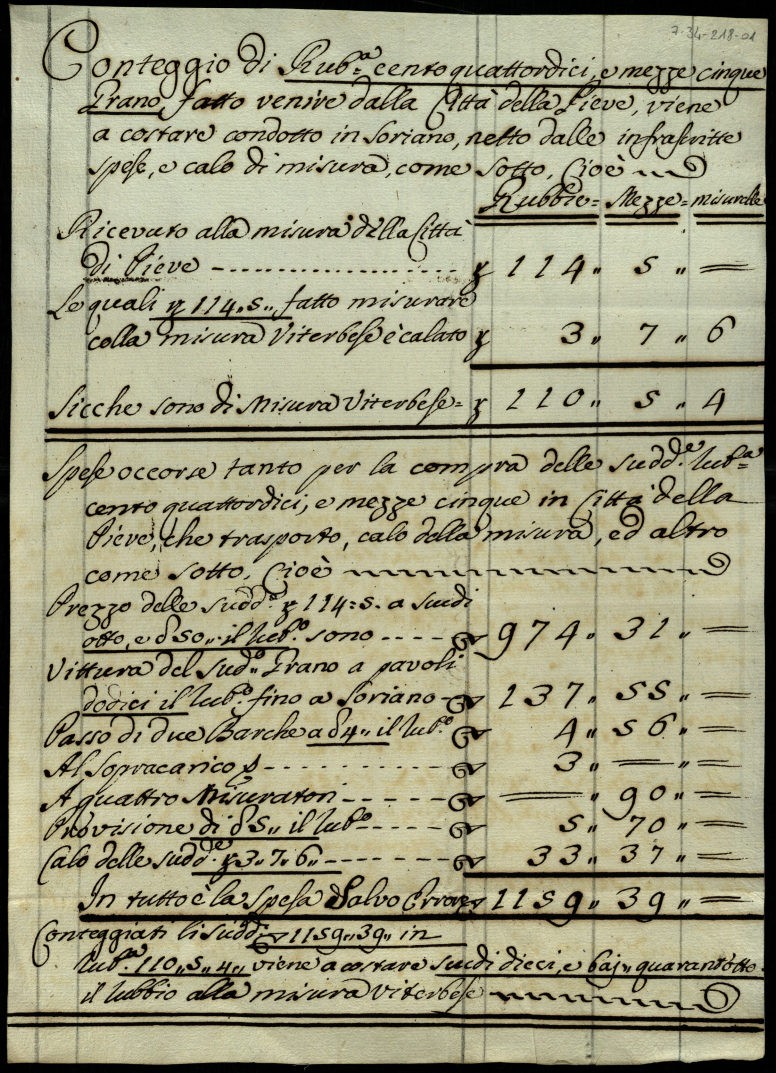 7-34-218-01
Conteggio di Rub.ª cento quattordici, e mezze cinque
Grano, fatto venire dalla Città della Pieve, viene
a costare condotto in Soriano, netto dalle infrascritte
spese, e calo di misura, come sotto. Cioè
Rubbie = Mezze = misurelle
Ricevuto alla misura della Città
di Pieve ---------- 114 „ 5 „ =
Le quali 114„5„ fatto misurare
colla misura Viterbese è calato 3 „ 7 „ 6
Sicche sono di Misura Viterbese = 110 „ 5 „ 4
Spese occorse tanto per la compra delle sudd.e Rub.ª
cento quattordici, e mezze cinque in Città della
Pieve, che trasporto, calo della misura, ed altro
come sotto. Cioè
Prezzo delle sudd.e 114=5. a scudi
otto, e 50„ il Rub.º sono ---- 974 „ 31 „ =
Vittura del sud.º Grano a pavoli
dodici il Rub.º fino a Soriano - 137 „ 55 „ =
Passo di due Barche a 4„ il Rub.º 4 „ 56 „ =
Al Sopracarico --------- 3 „ = „ =
A quattro Misuratori ----- = „ 90 „ =
Provisione di 5„ il Rub.º ----- 5 „ 70 „ =
Calo delle sudd.e 3„7„6„ ------ 33 „ 37 „ =
In tutto è la spesa Salvo Errore 1159 „ 39 „ =
Conteggiati li sudd.i 1159„39„ in
Rub.ª 110„5„4„ viene a costare scudi dieci, e baj„ quarantotto
il Rubbio alla misura viterbese